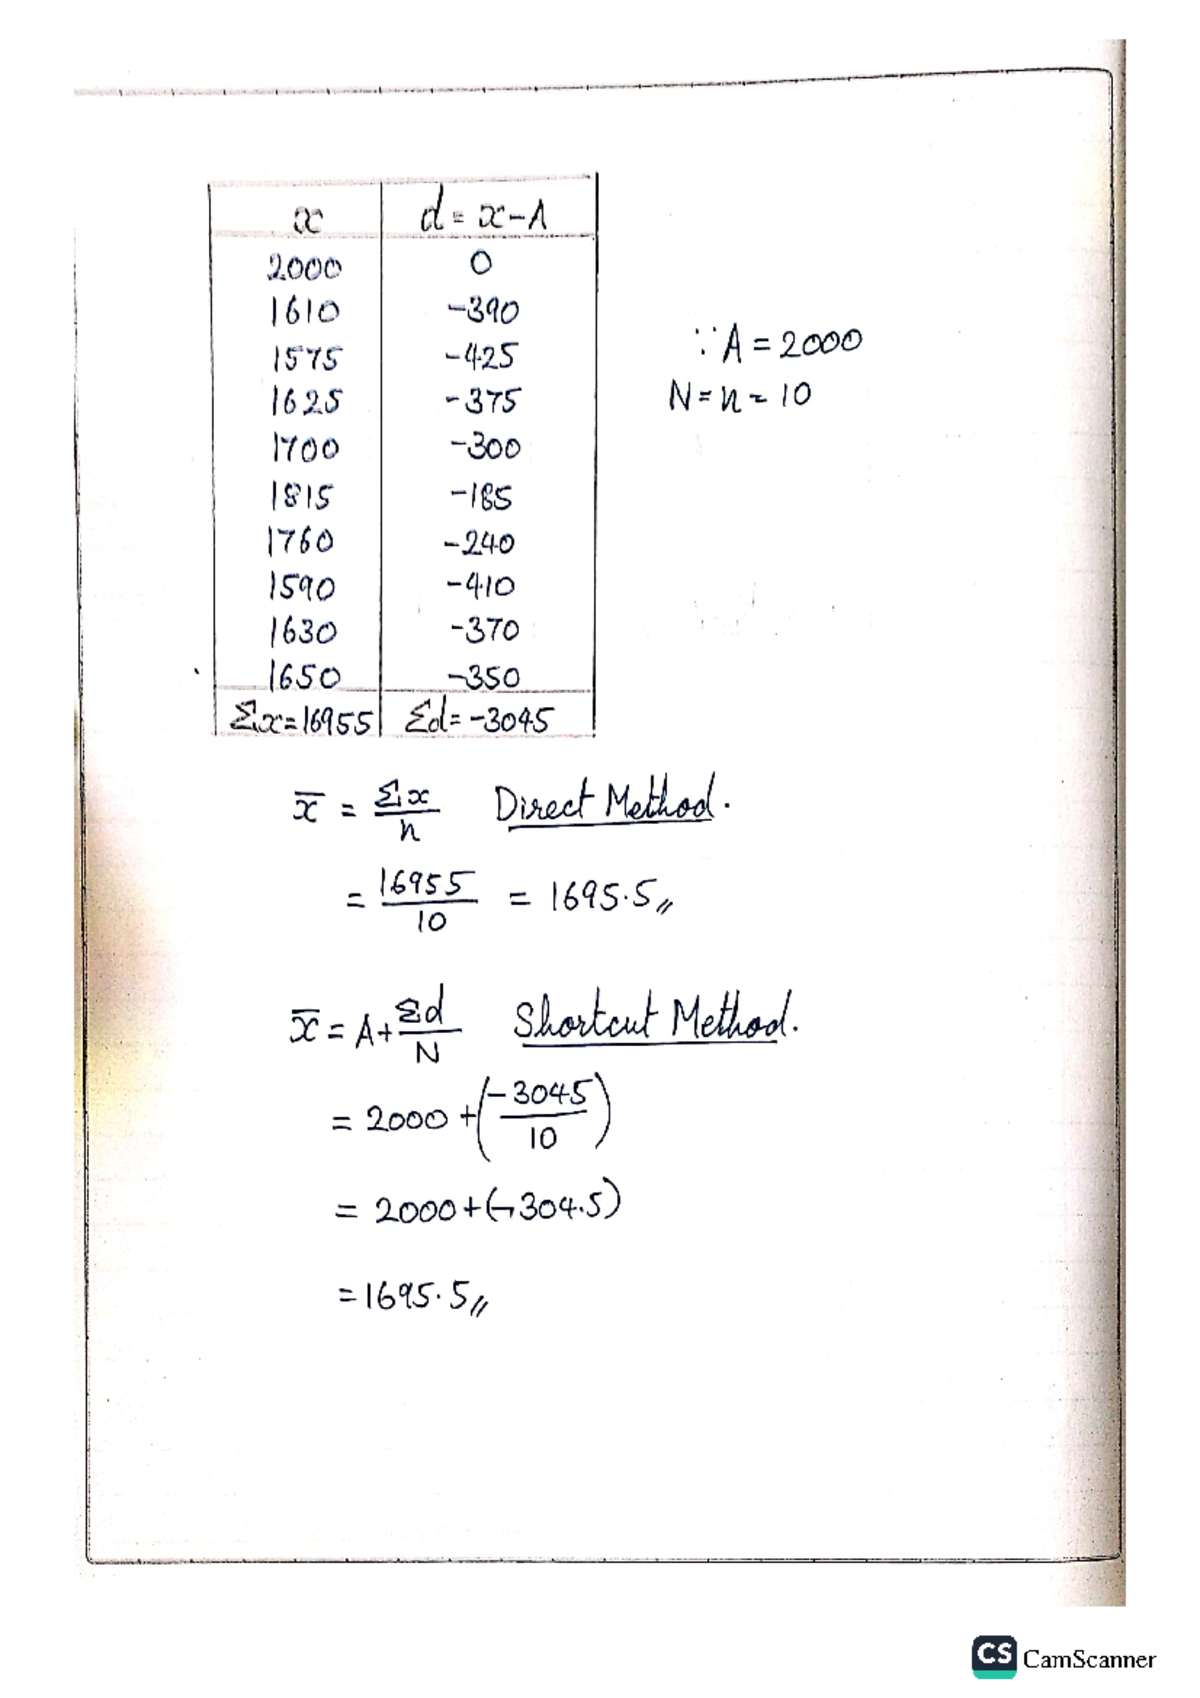 x d = x-A
2000 0
1610 -390
1575 -425
1625 -375
1700 -300
1815 -185
1760 -240
1590 -410
1630 -370
1650 -350
Σx=16955 Σd=-3045
∵ A = 2000
N = n = 10
x̄ = Σx/n Direct Method.
= 16955/10 = 1695.5//
x̄ = A+Σd/N Shortcut Method.
= 2000+(-3045/10)
= 2000+(-304.5)
=1695.5//
CS CamScanner